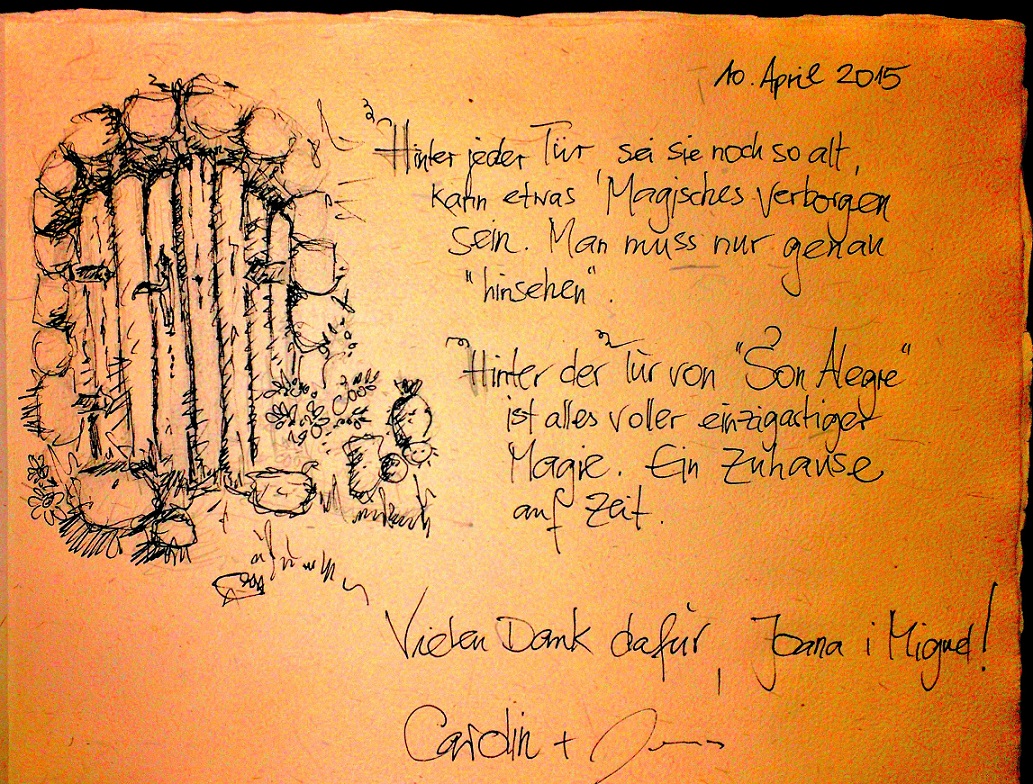 10. April 2015
Hinter jeder Tür, sei sie noch so alt,
kann etwas Magisches verborgen
sein. Man muss nur genau
"hinsehen".
Hinter der Tür von "Son Alegre"
ist alles voller einzigartiger
Magie. Ein Zuhause
auf Zeit.
Vielen Dank dafür, Joana i Miguel!
Carolin +